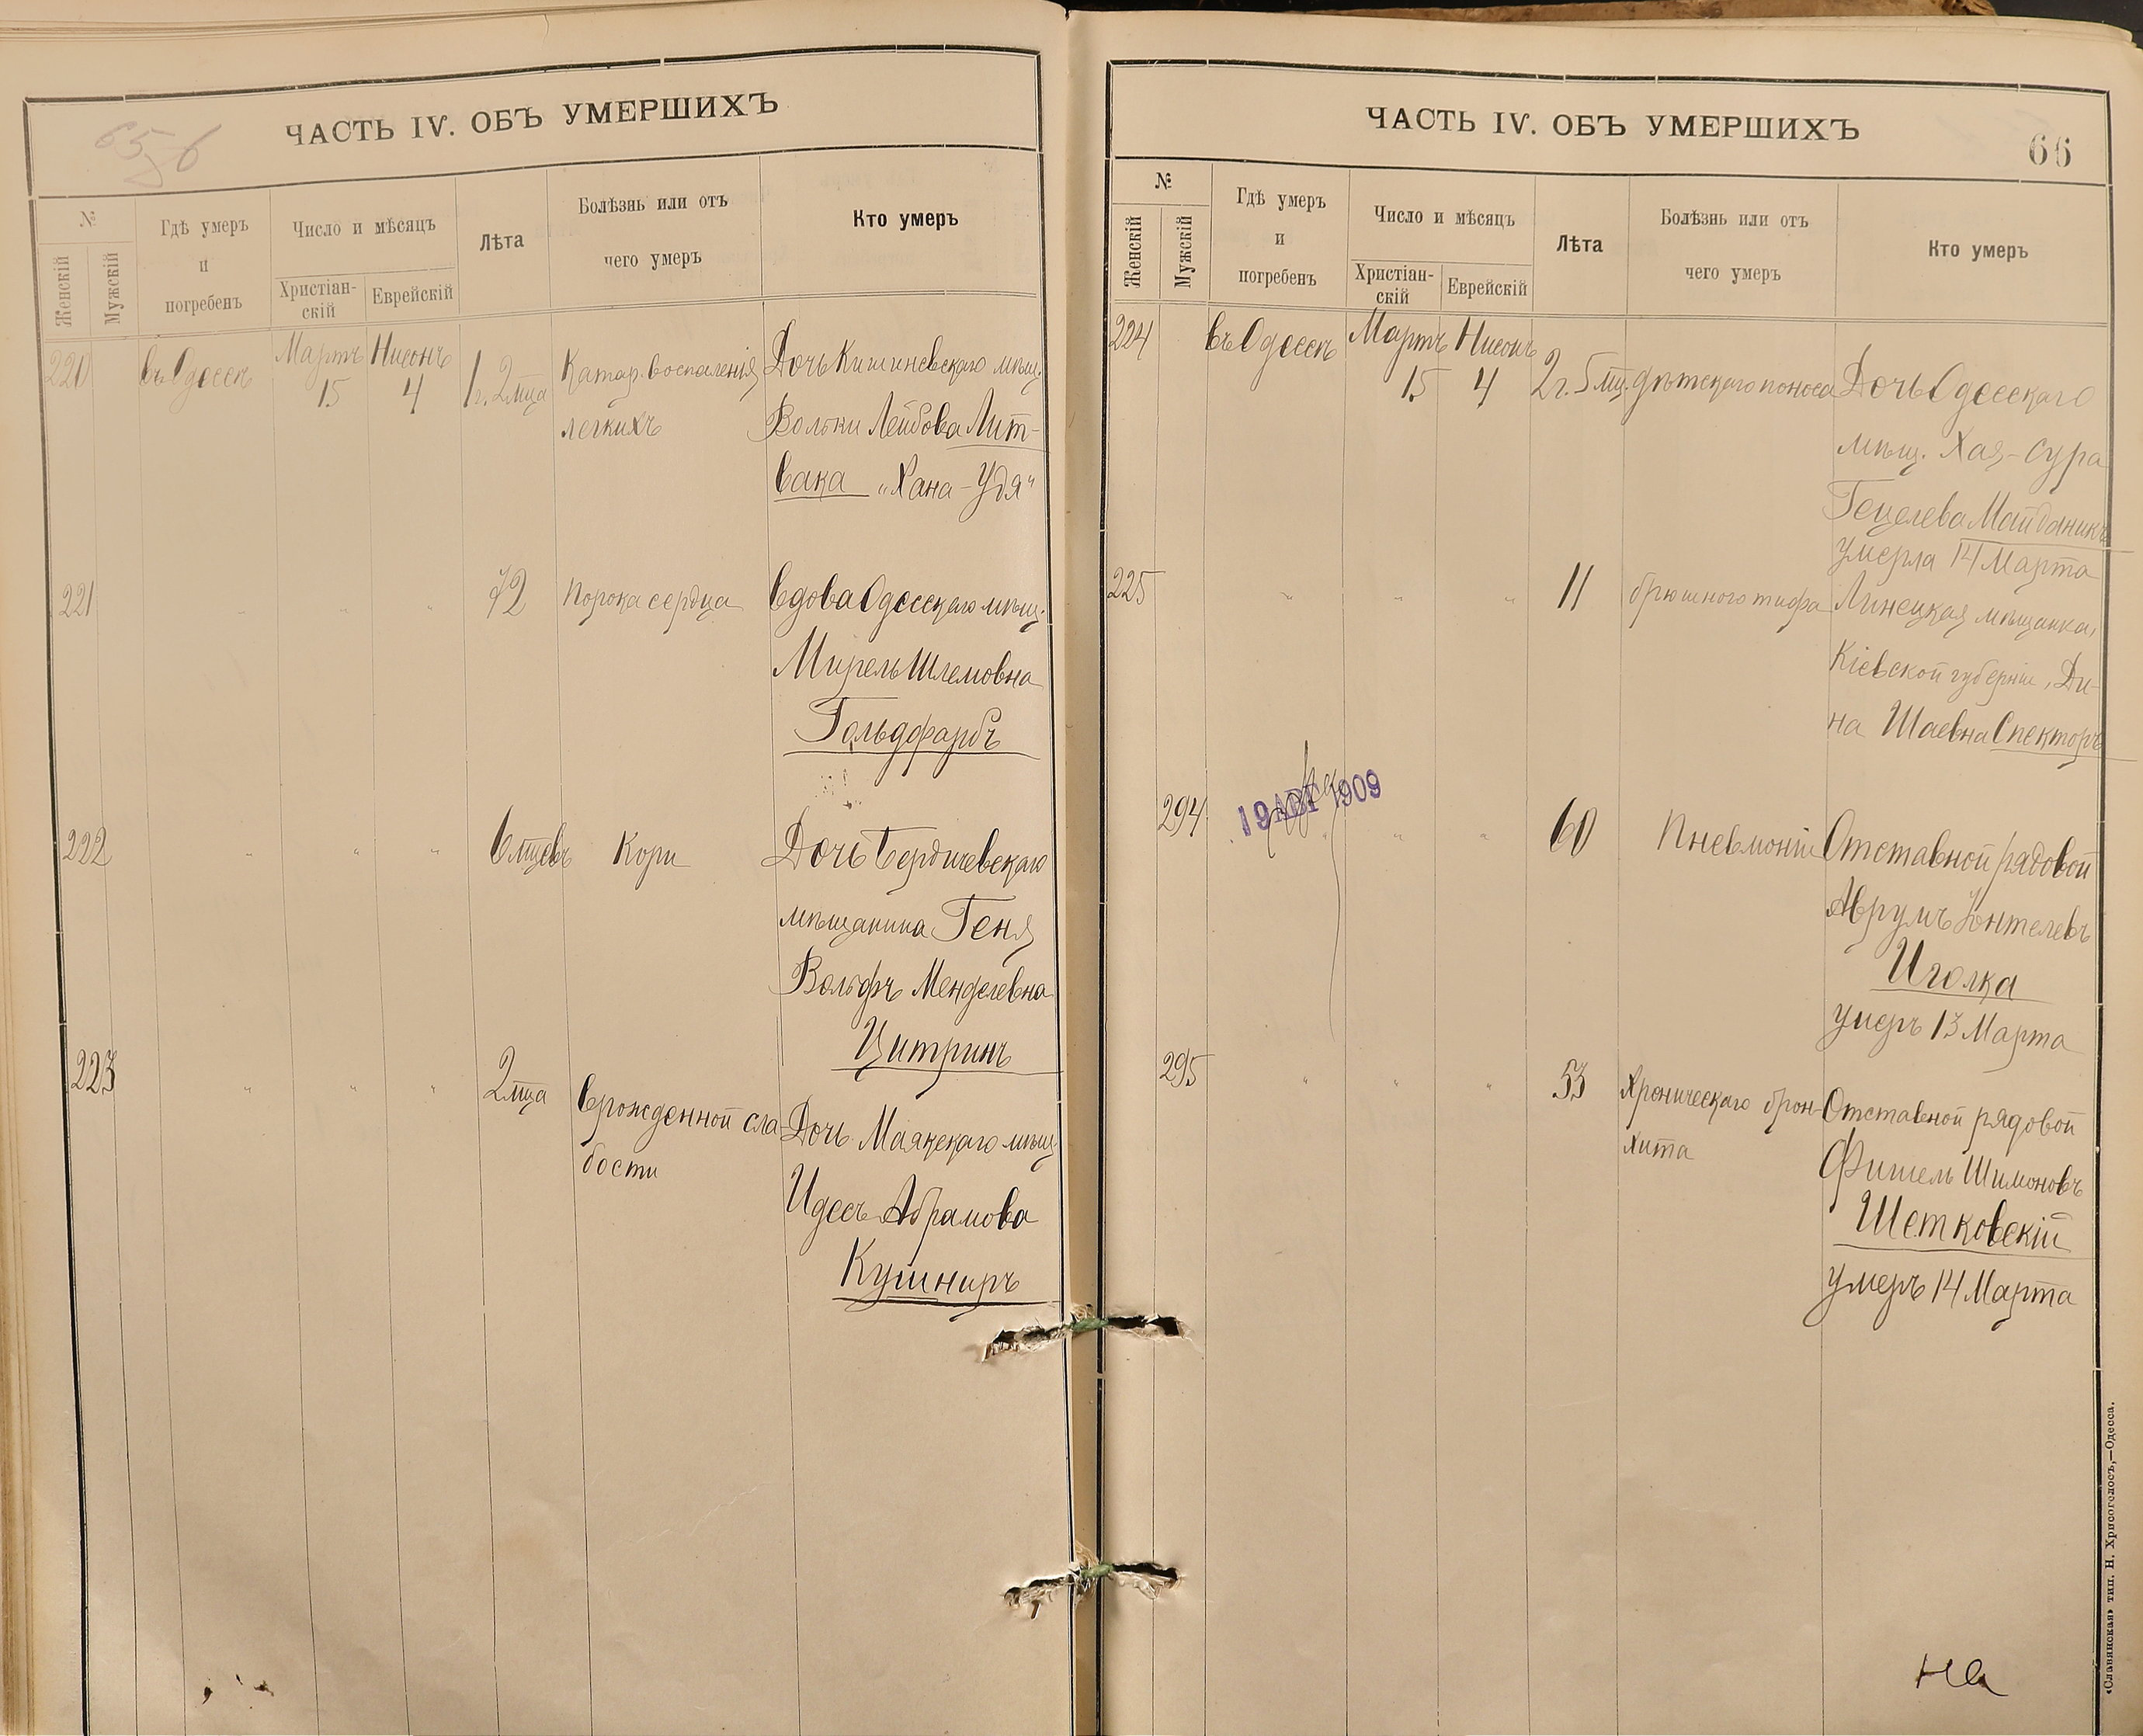 65 б
ЧАСТЬ IV. ОБЪ УМЕРШИХЪ
№
Женскій
Мужскій
Гдѣ умеръ
и
погребенъ
Число и мѣсяцъ
Христіан-
скій
Еврейскій
Лѣта
Болѣзнь или отъ
чего умеръ
Кто умеръ
220 въ Одессѣ Мартъ 15 Нисонъ 4 1 г. 2 мца Катар. воспаленія Дочь Кишиневскаго мѣщ.
легкихъ Вольки Лейбова Лит-
вака „Хана-Удя“
221 " " " 72 Порока сердца Вдова Одесскаго мѣщ.
Мирель Шлемовна
Гольдфарбъ
222 " " " 6 мцевъ Кори Дочь Бердичевскаго
мѣщанина Геня
Вольфъ Менделевна
Цитринъ
223 " " " 2 мца Врожденной сла- Дочь Маякскаго мѣщ.
бости
Идесъ Абрамова
Кушниръ
ЧАСТЬ IV. ОБЪ УМЕРШИХЪ
66
№
Женскій
Мужскій
Гдѣ умеръ
и
погребенъ
Число и мѣсяцъ
Христіан-
скій
Еврейскій
Лѣта
Болѣзнь или отъ
чего умеръ
Кто умеръ
224 въ Одессѣ Мартъ 15 Нисонъ 4 2 г. 5 мц. дѣтскаго поноса Дочь Одесскаго
мѣщ. Хая-Сура
Гецелева Майданикъ
умерла 14 Марта
225 " " " 11 брюшного тифа Линецкая мѣщанка,
Кіевской губерніи, Ди-
на Шаевна Спекторъ
19 АВГ 1909
294 " " " 60 Пневмоніи Отставной рядовой
Аврумъ Юнтелевъ
Иголка
умеръ 13 Марта
295 " " " 53 Хроническаго брон- Отставной рядовой
хита Фишель Шимоновъ
Шетковскій
умеръ 14 Марта
на
«Славянская» тип. Н. Хрисогелосъ,—Одесса.